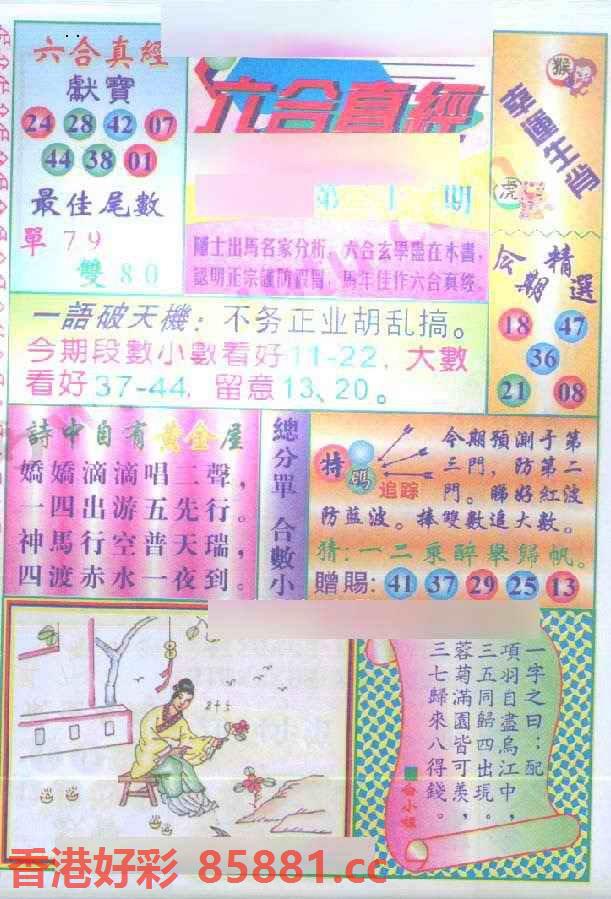 六合真經
獻寶
24 28 42 07
44 38 01
最佳尾數
單 7 9
雙 8 0
六合真經
第
期
隱士出馬名家分析，六合玄學盡在本書，
認明正宗謹防假冒，馬年佳作六合真經。
猴
幸運生肖
虎
今期精選
18 47
36
21 08
一語破天機：不务正业胡乱搞。
今期段數小數看好11-22，大數
看好37-44，留意13、20。
詩中自有黃金屋
嬌嬌滴滴唱二聲，
一四出游五先行。
神馬行空普天瑞，
四渡赤水一夜到。
總分單 合數小
特碼
追踪
今期預測于第
三門，防第二
門。睇好紅波
防藍波。捧雙數追大數。
猜：一二乘醉舉歸帆。
贈賜：41 37 29 25 13
一字之曰：配
項羽自盡烏江中，
三五同歸四出現。
蓉菊滿園皆可羨，
三七歸來八得錢。
香港好彩 85881.cc